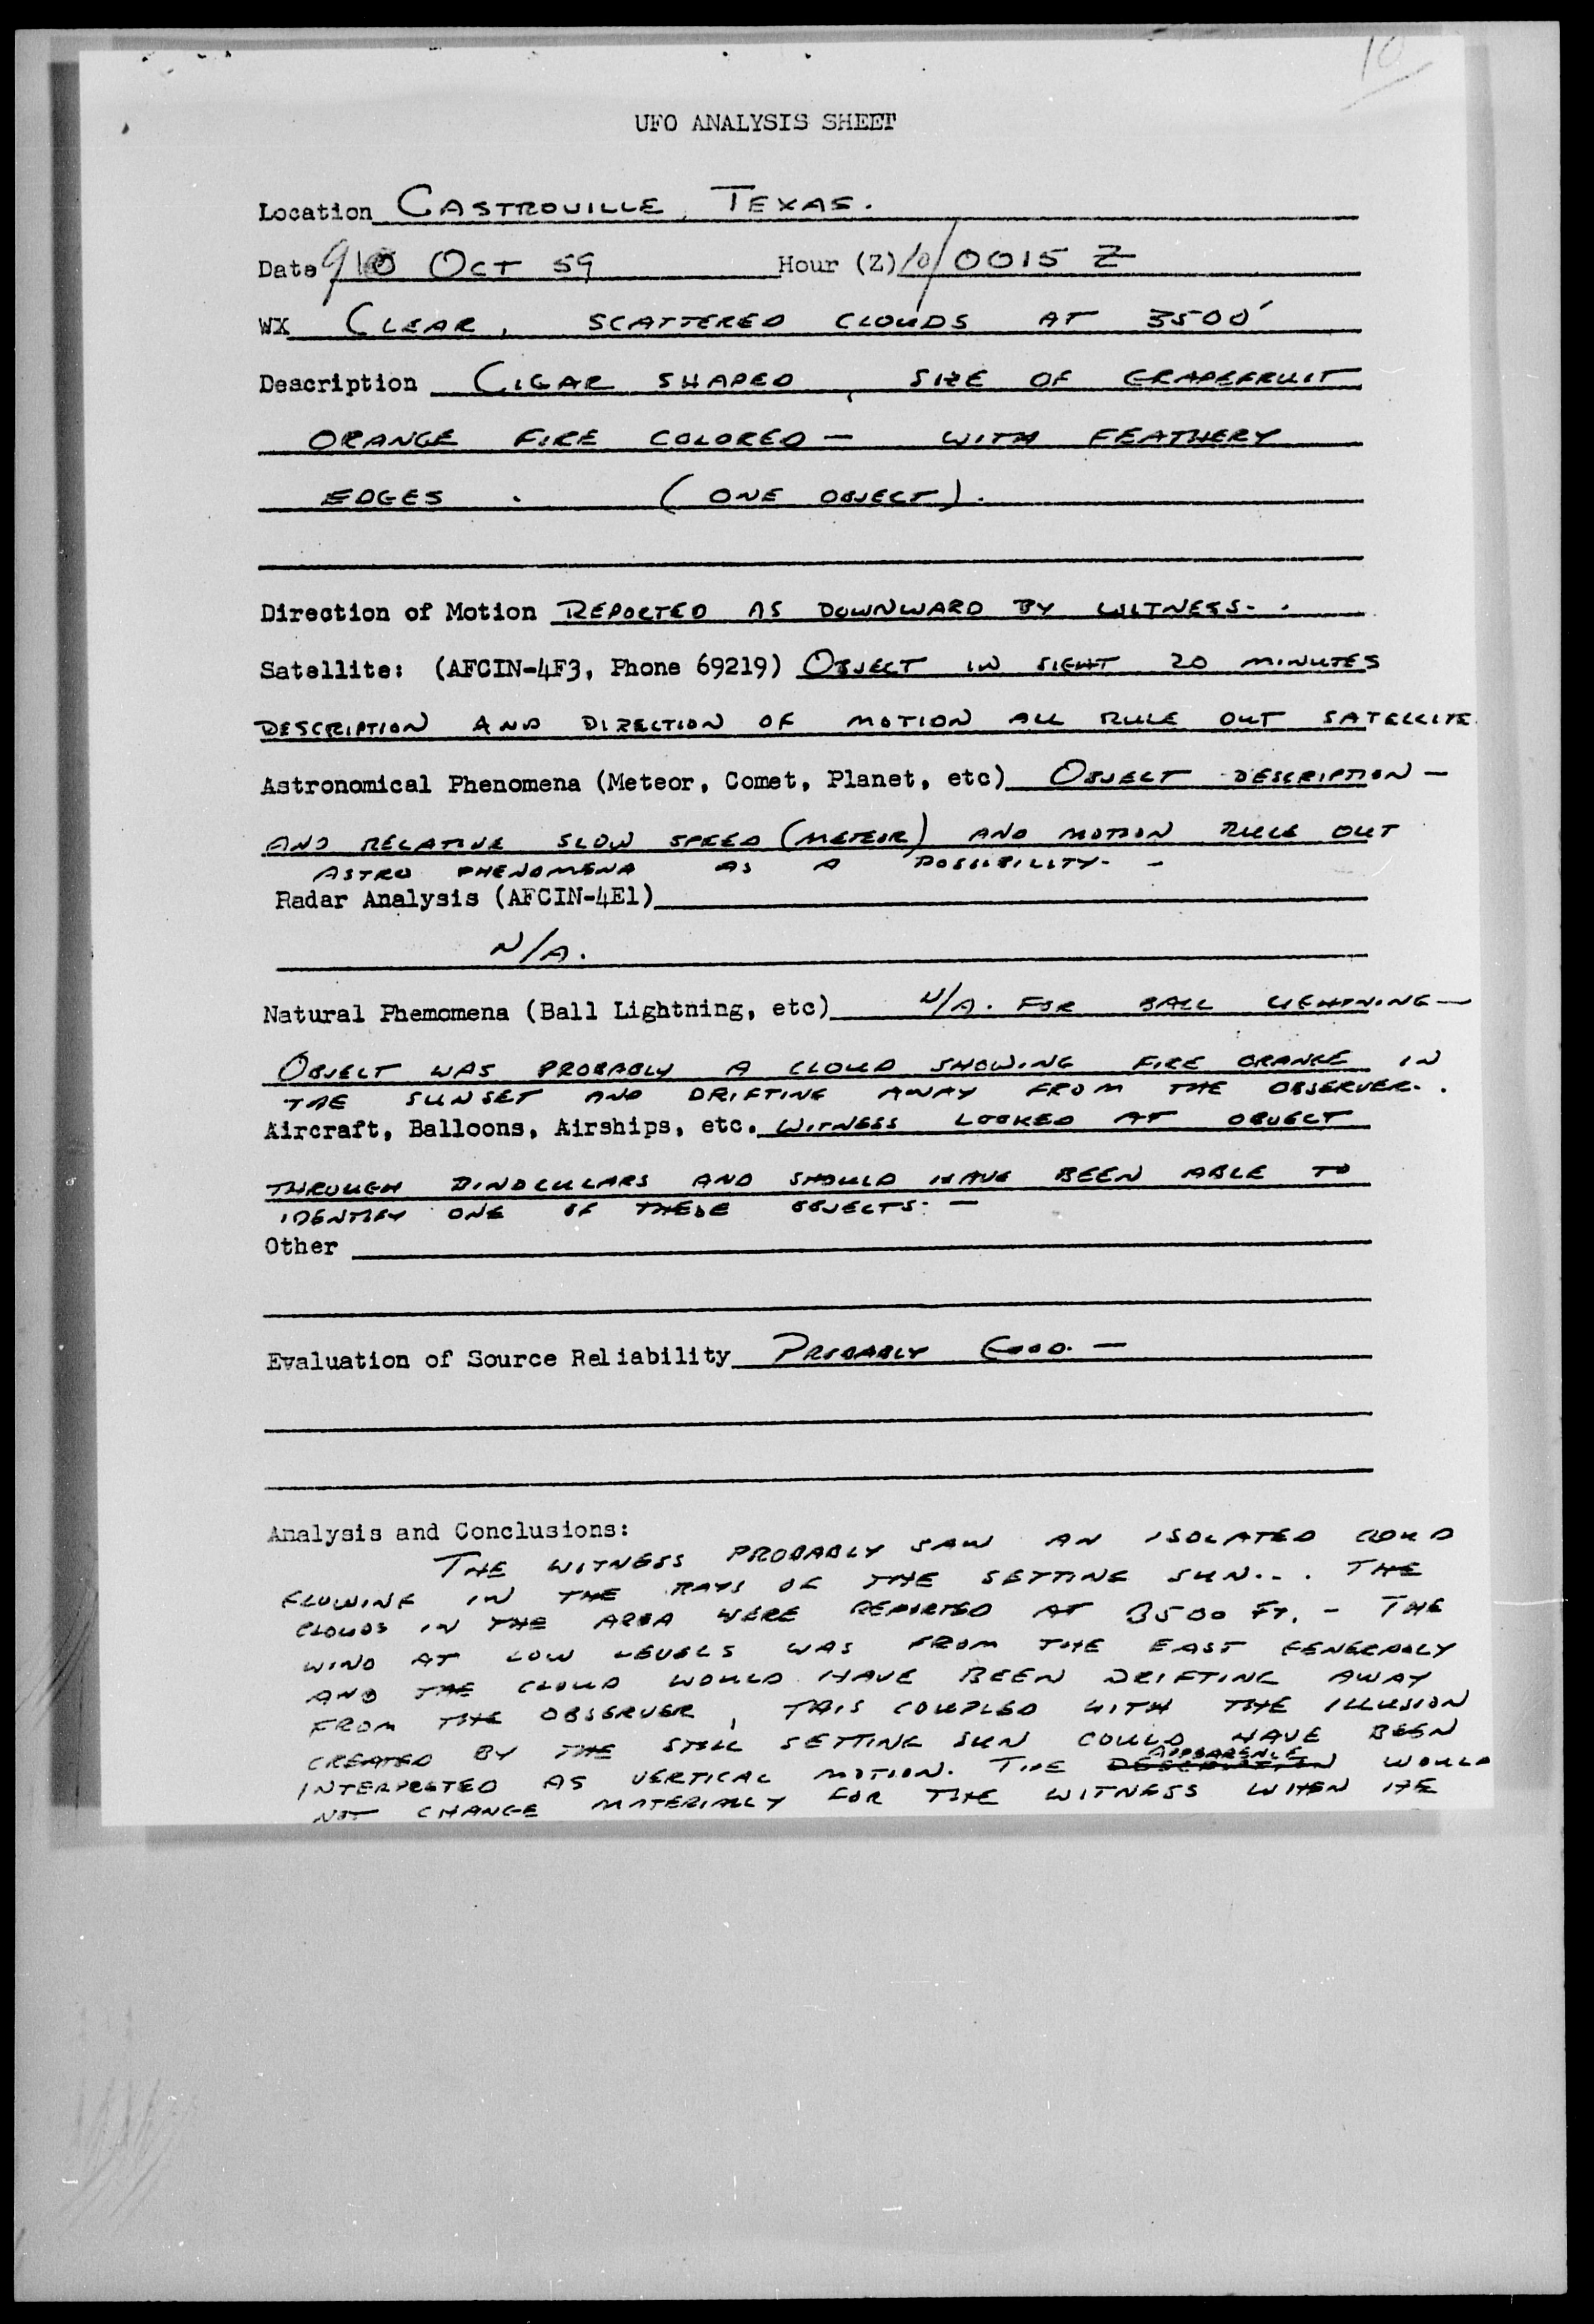 10
UFO ANALYSIS SHEET
Location CASTROVILLE, TEXAS.
Date 9/10 OCT 59 Hour (Z) 10/0015 Z
WX CLEAR, SCATTERED CLOUDS AT 3500'
Description CIGAR SHAPED, SIZE OF GRAPEFRUIT
ORANGE FIRE COLORED — WITH FEATHERY
EDGES. (ONE OBJECT).
Direction of Motion REPORTED AS DOWNWARD BY WITNESS.
Satellite: (AFCIN-4F3, Phone 69219) OBJECT IN SIGHT 20 MINUTES
DESCRIPTION AND DIRECTION OF MOTION ALL RULE OUT SATELLITE.
Astronomical Phenomena (Meteor, Comet, Planet, etc) OBJECT DESCRIPTION —
AND RELATIVE SLOW SPEED (METEOR) AND MOTION RULE OUT
ASTRO PHENOMENA AS A POSSIBILITY. —
Radar Analysis (AFCIN-4E1)
N/A.
Natural Phemomena (Ball Lightning, etc) N/A. FOR BALL LIGHTNING —
OBJECT WAS PROBABLY A CLOUD SHOWING FIRE ORANGE IN
THE SUNSET AND DRIFTING AWAY FROM THE OBSERVER.
Aircraft, Balloons, Airships, etc. WITNESS LOOKED AT OBJECT
THROUGH BINOCULARS AND SHOULD HAVE BEEN ABLE TO
IDENTIFY ONE OF THESE OBJECTS. —
Other
Evaluation of Source Reliability PROBABLY GOOD. —
Analysis and Conclusions:
THE WITNESS PROBABLY SAW AN ISOLATED CLOUD
GLOWING IN THE RAYS OF THE SETTING SUN... THE
CLOUDS IN THE AREA WERE REPORTED AT 3500 FT. - THE
WIND AT LOW LEVELS WAS FROM THE EAST GENERALLY
AND THE CLOUD WOULD HAVE BEEN DRIFTING AWAY
FROM THE OBSERVER, THIS COUPLED WITH THE ILLUSION
CREATED BY THE STILL SETTING SUN COULD HAVE BEEN
INTERPRETED AS VERTICAL MOTION. THE APPEARENCE WOULD
NOT CHANGE MATERIALLY FOR THE WITNESS WHEN HE